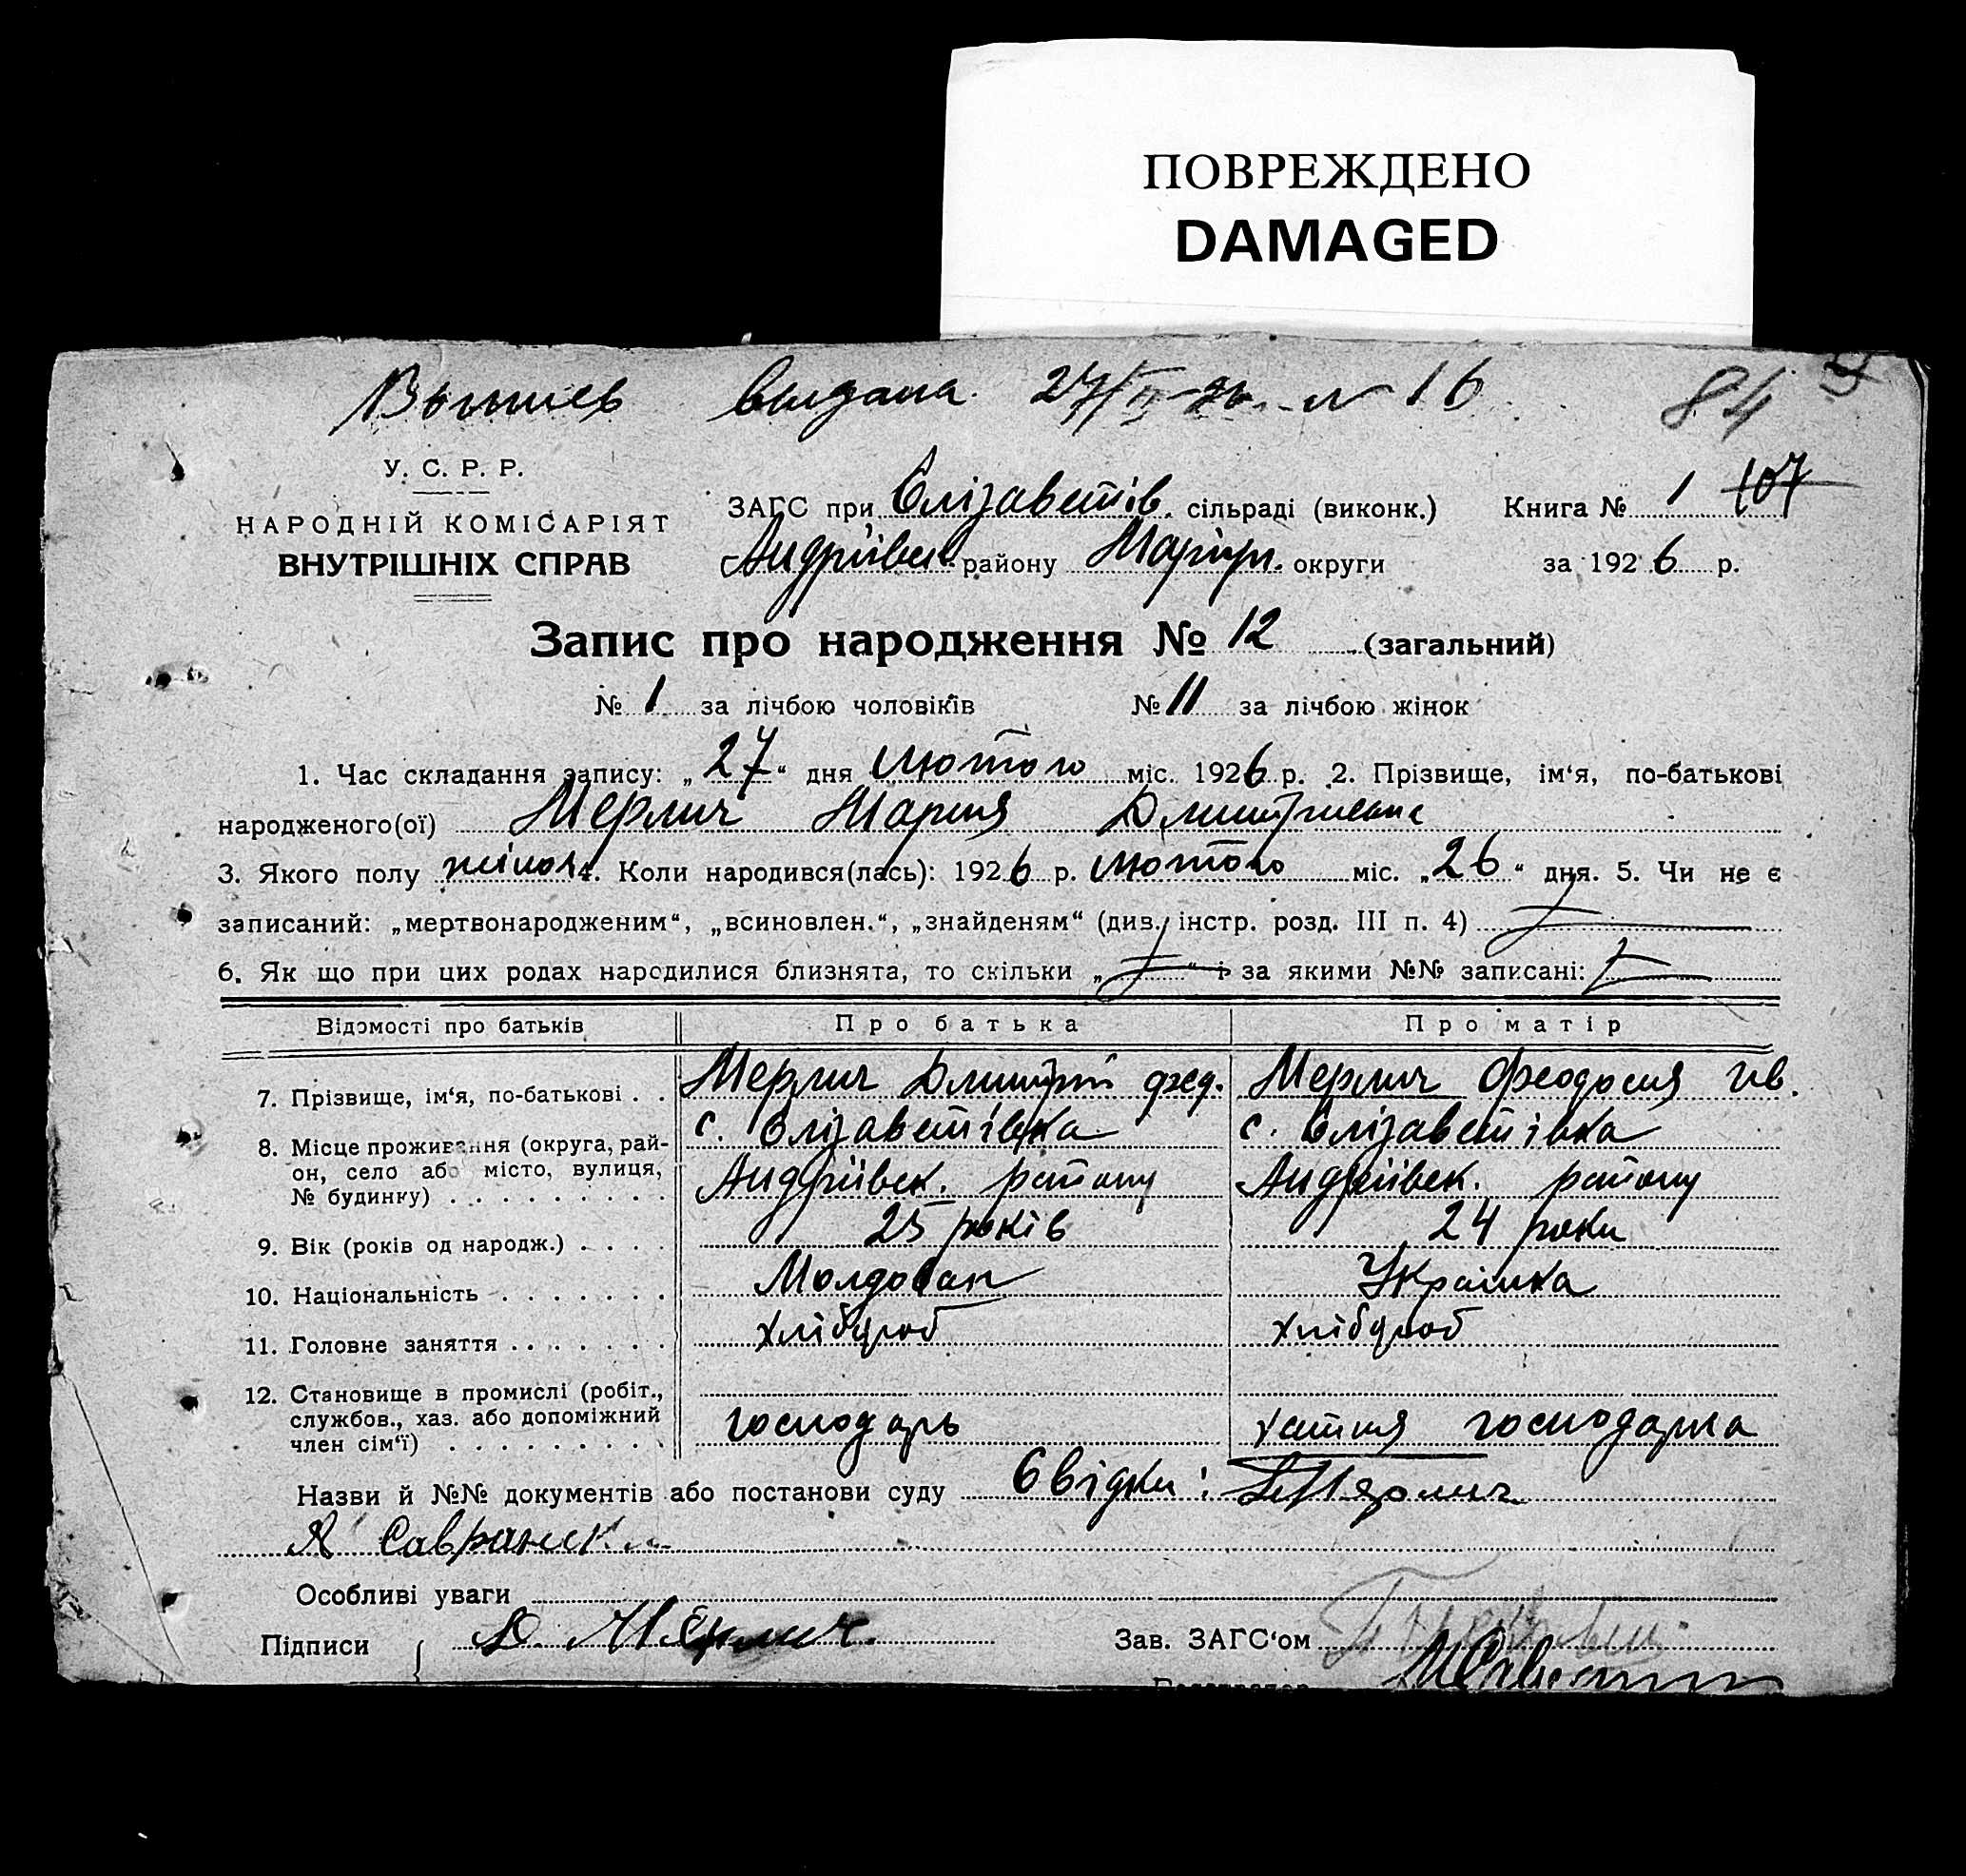 ПОВРЕЖДЕНО
DAMAGED
выдана 27/II 26 № 16 84
У. С. Р. Р.
НАРОДНІЙ КОМІСАРІЯТ
ВНУТРІШНІХ СПРАВ
ЗАГС при Єлізаветів. сільраді (виконк.) Книга № 1 107
Андріївск. району Маріуп. округи за 1926 р.
Запис про народження № 12 (загальний)
№ 1 за лічбою чоловіків № 11 за лічбою жінок
1. Час складання запису: „27“ дня Лютого міс. 1926 р. 2. Прізвище, ім‘я, по-батькові
народженого(ої) Мерлич Мария
3. Якого полу жіноч 4. Коли народився(лась): 1926 р. Лютого міс. „26“ дня. 5. Чи не є
записаний: „мертвонародженим“, „всиновлен.“, „знайденям“ (див. інстр. розд. III п. 4)
6. Як що при цих родах народилися близнята, то скільки „ “ і за якими №№ записані:
Відомості про батьків Про батька Про матір
7. Прізвище, ім‘я, по-батькові . . Мерлич Дмитрій фед. Мерлич Феодосия Ів.
8. Місце проживання (округа, рай- с. Єлізаветівка с. Єлізаветівка
он, село або місто, вулиця,
№ будинку) . . . . . . . . . Андріївск. району Андріївск. району
9. Вік (років од народж.) . . . . 25 років 24 роки
10. Національність . . . . . . . Молдован Українка
11. Головне заняття . . . . . . . хлібороб хлібороб
12. Становище в промислі (робіт.,
службов., хаз. або допоміжний
член сім‘ї) . . . . . . . . . господарь хатня господарка
Назви й №№ документів або постанови суду Свідки: Мярлич
Я
Особливі уваги
Підписи Д. Мярлич Зав. ЗАГС‘ом